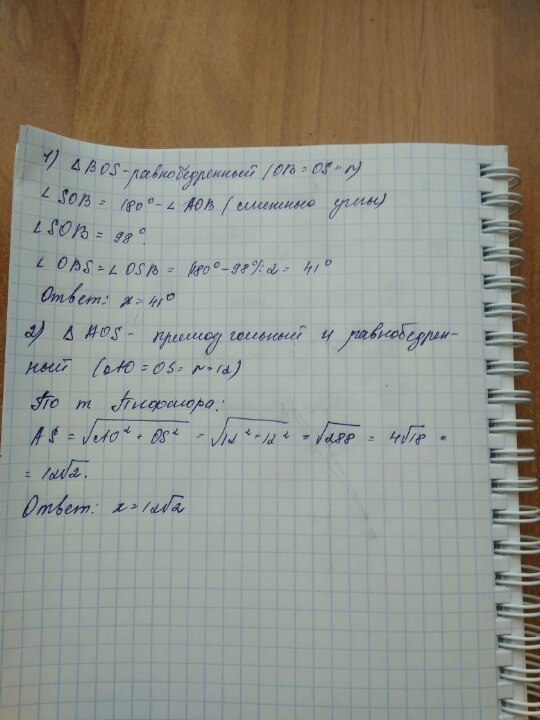 1) △BOS - равнобедренный (OB = OS = r)
∠SOB = 180° - ∠AOB (смежные углы)
∠SOB = 98°.
∠OBS = ∠OSB = (180° - 98°):2 = 41°
Ответ: x = 41°
2) △AOS - прямоугольный и равнобедрен-
ный (AO = OS = r = 12)
По т Пифагора:
AS = √AO² + OS² = √12² + 12² = √288 = 4√18 =
= 12√2.
Ответ: x = 12√2